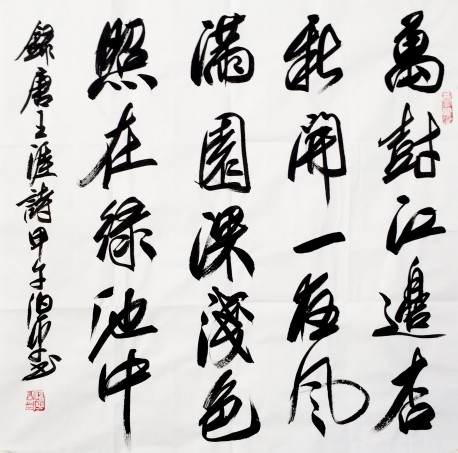 萬樹江邊杏
新開一夜風
滿園深淺色
照在綠池中
錄唐王涯詩甲午書